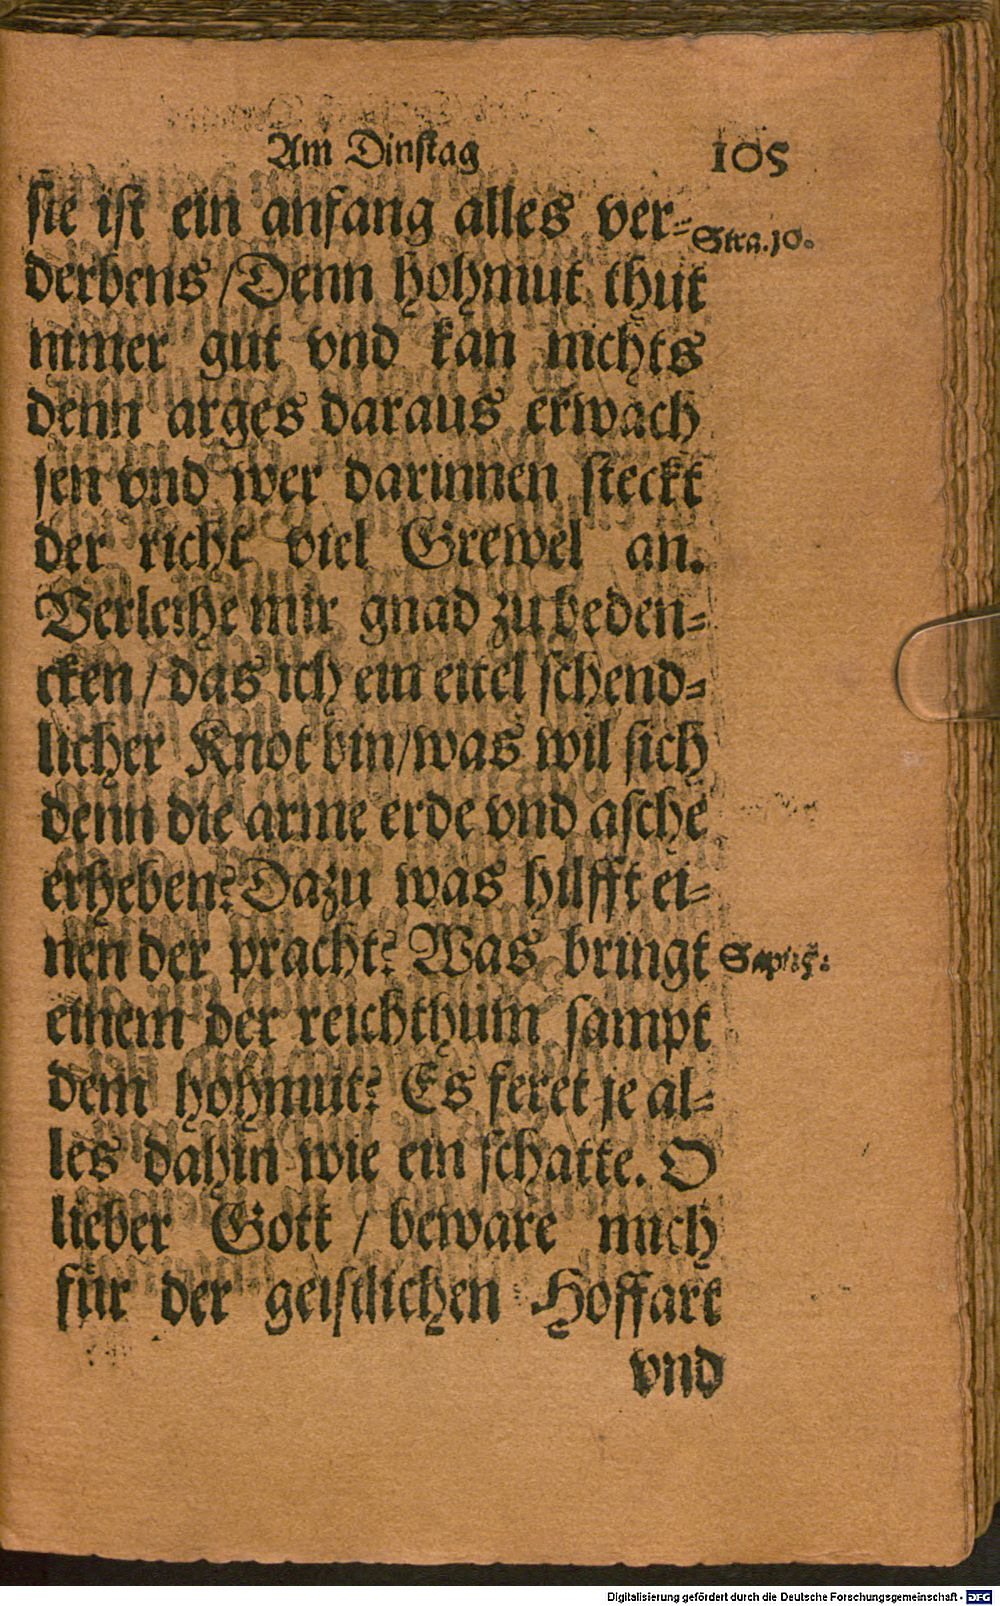 Am Dinſtag 105
ſie iſt ein anfang alles ver-
Stra. 10.
derbens / Denn hohmut thut
nimer gut vnd kan nichts
denn arges daraus erwach
ſen vnd wer darinnen ſteckt
der richt viel Grewel an.
Verleihe mir gnad zu beden-
cken / das ich ein eitel ſchend-
licher Knot bin / was wil ſich
denn die arme erde vnd aſche
erheben? Dazu was hilfft ei-
nen der pracht? Was bringt
Sap: 5:
einem der reichthum ſampt
dem hohmut? Es feret je al-
les dahin wie ein ſchatte. O
lieber Gott / beware mich
für der geiſtlichen Hoffart
vnd
Digitalisierung gefördert durch die Deutsche Forschungsgemeinschaft - DFG